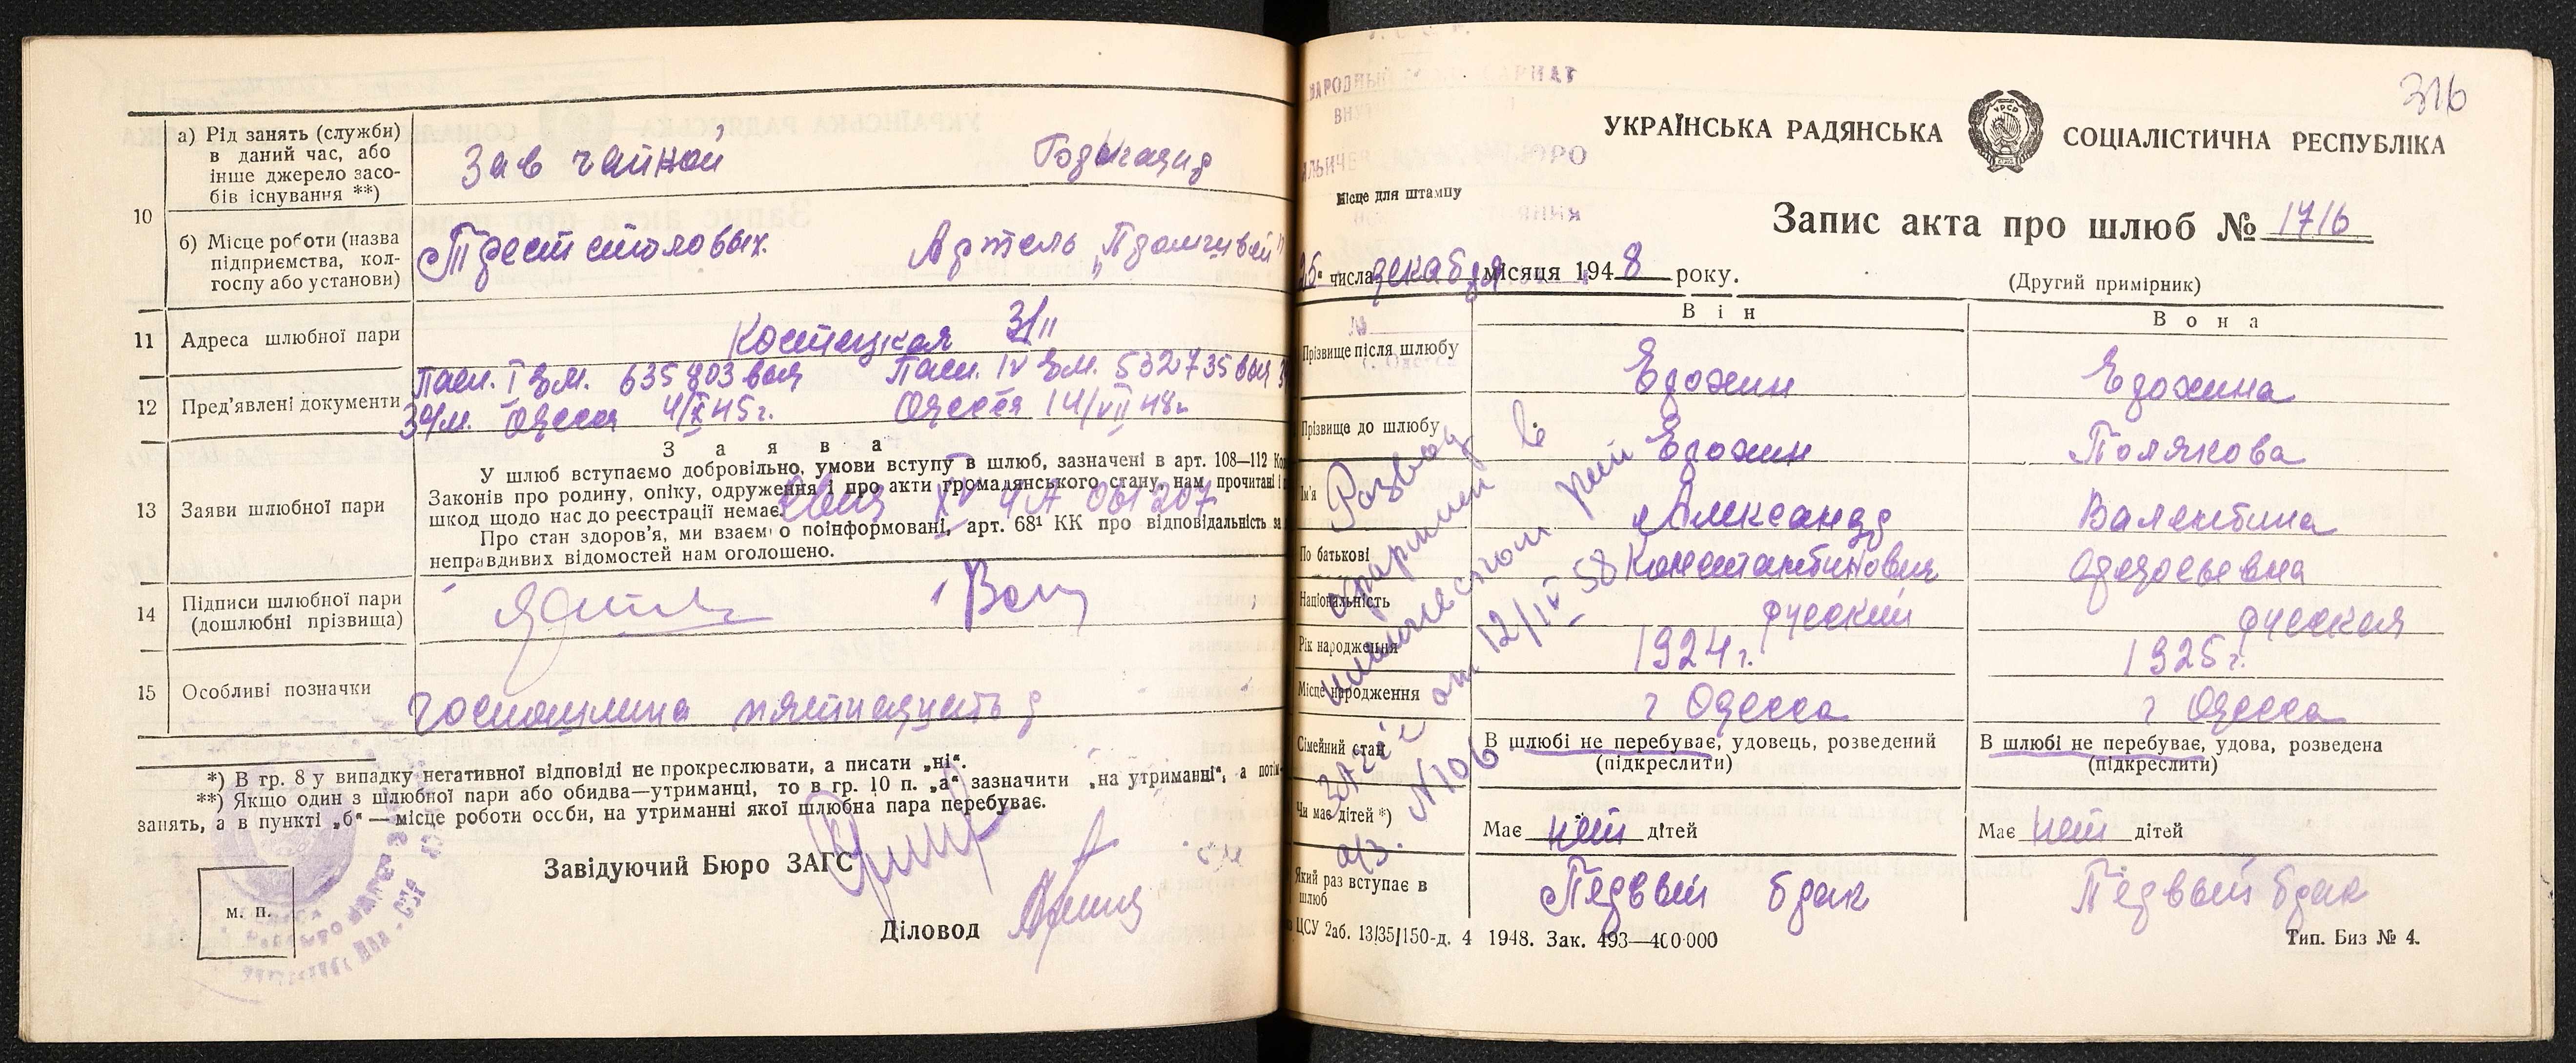 10
а) Рід занять (служби) в даний час, або інше джерело засобів існування **)
Зав чайной
б) Місце роботи (назва підприємства, колгоспу або установи)
Трест столовых.
Артель
11
Адреса шлюбної пари
Костецкая 3/11
12
Пред'явлені документи
Пасп. IV ОМ. 532735
Одесса 4/X 45 г.
Одесса 14/VII 48 г
13
Заяви шлюбної пари
Заява
У шлюб вступаємо добровільно, умови вступу в шлюб, зазначені в арт. 108—112
Законів про родину, опіку, одруження і про акти громадянського стану, нам прочитані і
шкод щодо нас до реєстрації немає.
Про стан здоров'я, ми взаємно поінформовані, арт. 68¹ КК про відповідальність за
неправдивих відомостей нам оголошено.
061207
14
Підписи шлюбної пари (дошлюбні прізвища)
15
Особливі позначки
госпошлина пятнадцать р
*) В гр. 8 у випадку негативної відповіді не прокреслювати, а писати „ні“.
**) Якщо один з шлюбної пари або обидва—утриманці, то в гр. 10 п. „а“ зазначити „на утриманні“, а
занять, а в пункті „б“ — місце роботи особи, на утриманні якої шлюбна пара перебуває.
Завідуючий Бюро ЗАГС
м. п.
Діловод
316
УКРАЇНСЬКА РАДЯНСЬКА СОЦІАЛІСТИЧНА РЕСПУБЛІКА
Місце для штампу
Запис акта про шлюб № 1716
числа декабря місяця 1948 року.
(Другий примірник)
Він
Вона
Прізвище після шлюбу
Ерохин
Ерохина
Прізвище до шлюбу
Ерохин
Полякова
Ім'я
Александр
Валентина
По батькові
Константинович
Федосеевна
Національність
русский
русская
Рік народження
1924 г.
1925 г.
Місце народження
г Одесса
г Одесса
Сімейний стан
В шлюбі не перебуває, удовець, розведений
(підкреслити)
В шлюбі не перебуває, удова, розведена
(підкреслити)
Чи має дітей *)
Має нет дітей
Має нет дітей
Який раз вступає в шлюб
Первый брак
Первый брак
Развод
оформлен в
от 12/IV 58
ЗАГСе
а/з. N 106
ЦСУ 2аб. 13/35/150-д. 4 1948. Зак. 493—400·000
Тип. Биз № 4.